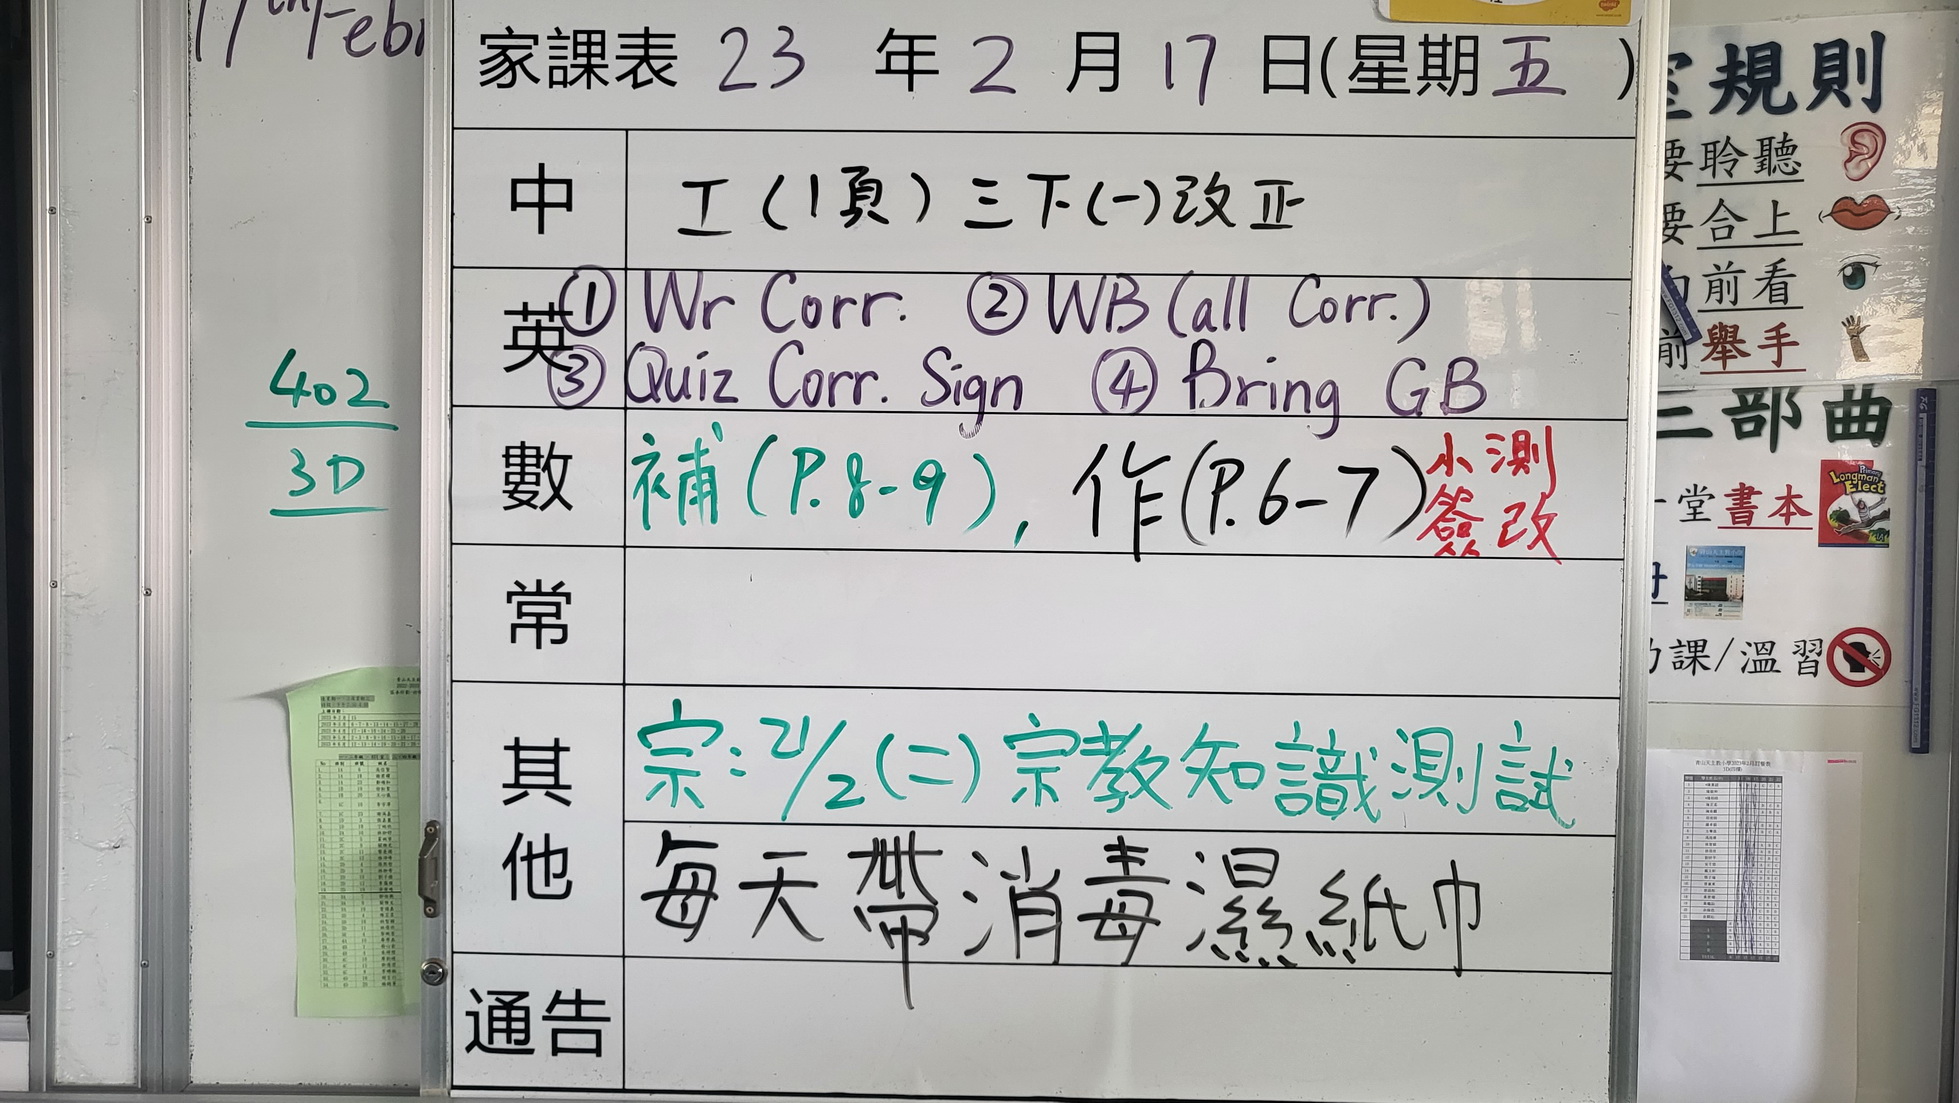 17th Febr
家課表 23 年 2 月 17 日(星期 五 )
中 工(1頁)三下(一)改正
英 ① Wr Corr. ② WB (all Corr.)
③ Quiz Corr. Sign ④ Bring GB
數 補(P.8-9), 作(P.6-7) 小測
簽改
常
其他 宗:21/2(二)宗教知識測試
每天帶消毒濕紙巾
通告
402
3D
規則
要聆聽
要合上
前看
前舉手
三部曲
堂書本
課/溫習
Primary
Longman
Elect